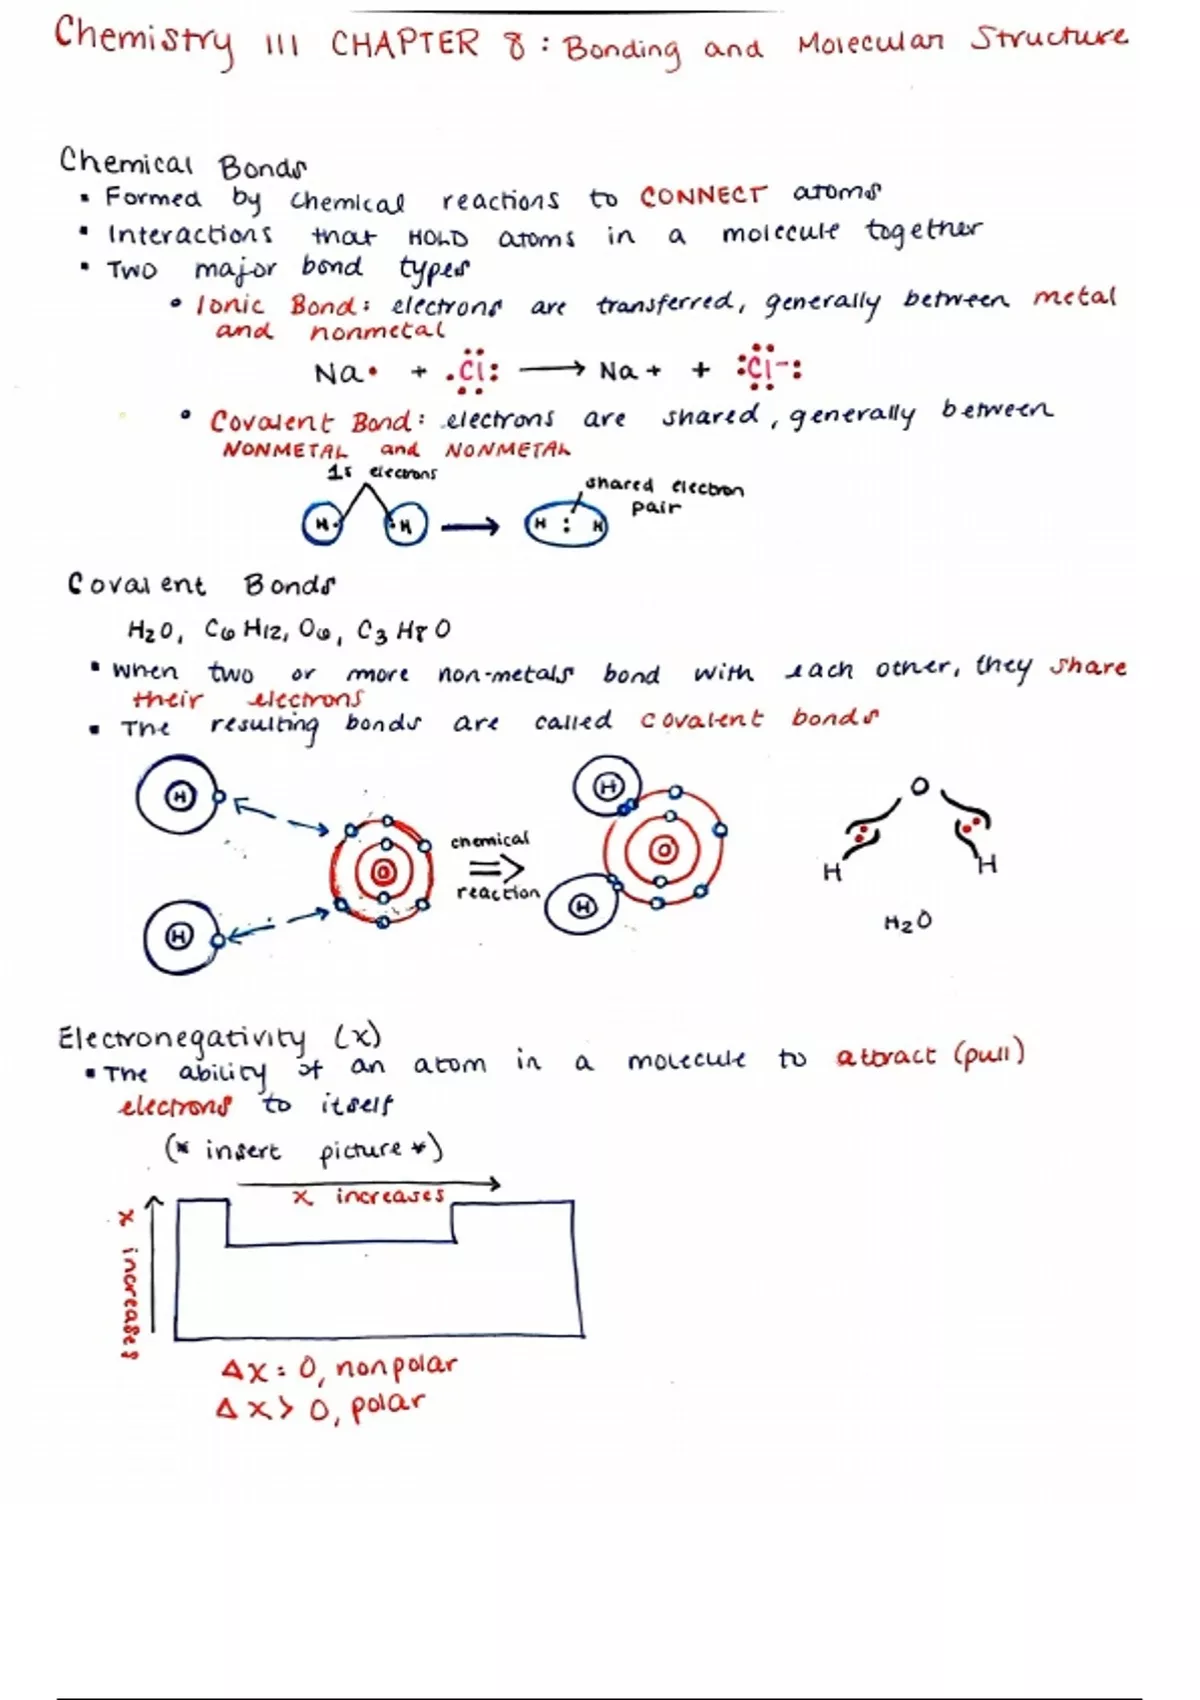 Chemistry III CHAPTER 8: Bonding and Molecular Structure
Chemical Bonds
▪ Formed by chemical reactions to CONNECT atoms
▪ Interactions that HOLD atoms in a molecule together
▪ Two major bond types
• Ionic Bond: electrons are transferred, generally between metal
and nonmetal
Na• + .Cl: → Na+ + :Cl-:
• Covalent Bond: electrons are shared, generally between
NONMETAL and NONMETAL
1s electrons
shared electron
pair
H· ·H → H : H
Covalent Bonds
H2O, C6H12, O6, C3H8O
▪ When two or more non-metals bond with each other, they share
their electrons
▪ The resulting bonds are called covalent bonds
H
H
O
chemical
⇒
reaction
H
O
H
O
H
H
H2O
Electronegativity (x)
▪ The ability of an atom in a molecule to attract (pull)
electrons to itself
(* insert picture *)
x increases
x increases
Δx = 0, nonpolar
Δx > 0, polar